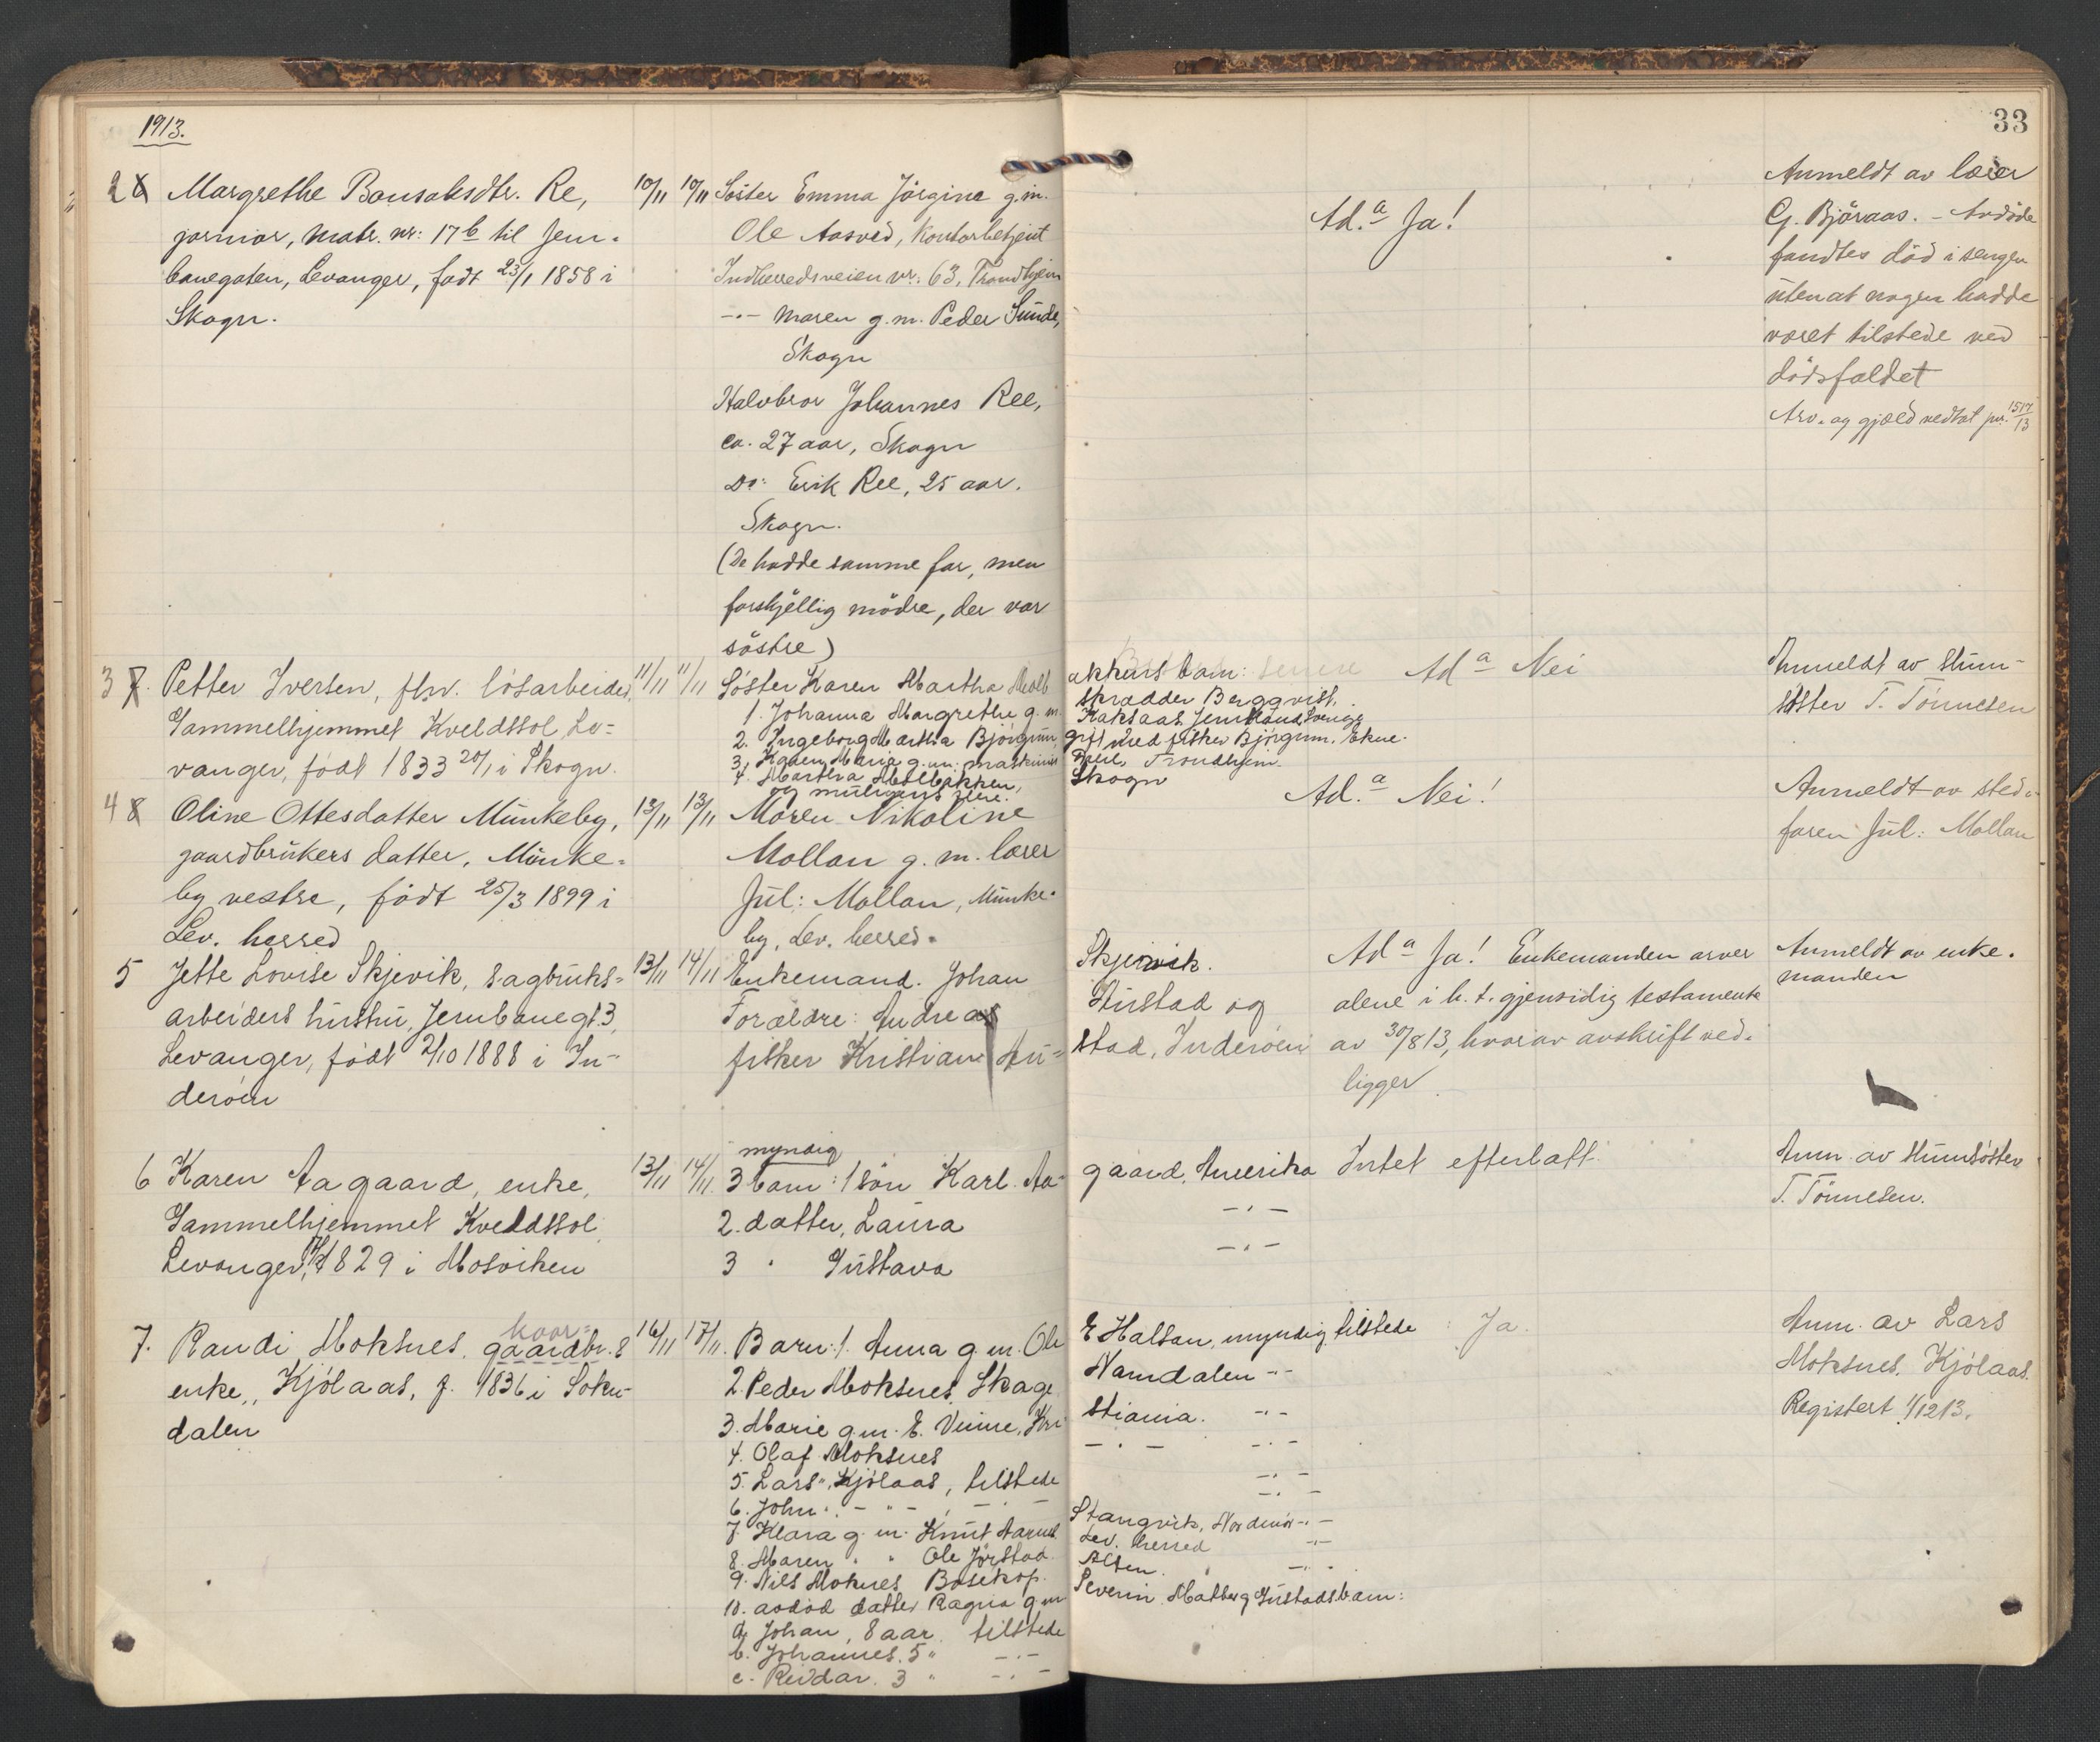 1913.
33
2 Margrethe Bousaksdtr. Re,
jormor, matr. nr: 17b til Jern-
banegaten, Levanger, født 23/1 1858 i
Skogn.
10/11 10/11
Søster Emma Jørgine g.m.
Ole Aasved, Kontorbetjent
Indherredsveien nr: 63, Trondhjem
-"- Maren g.m. Peder Sunde,
Skogn
Halvbror Johannes Ree,
ca. 27 aar, Skogn
Do: Erik Ree, 25 aar.
Skogn.
(De hadde samme far, men
forskjellig mødre, der var
søstre)
Ad. a Ja!
Anmeldt av lærer
G. Bjøraas. - Avdøde
fandtes død i sengen
uten at nogen hadde
været tilstede ved
dødsfaldet
Arv- og gjæld vedtat jnr. 1517/13
3 Petter Iversen, fhv. løsarbeider,
Gammelhjemmet Kveldssol, Le-
vanger, født 1833 20/1 i Skogn.
11/11 11/11
Søster Karen Martha Molb
akkens barn:
1. Johanna Margrethe g. m. skrædder Bergqvist,
Kaksaas, Jemtland, Sverige
2. Ingeborg Martha Bjørgum, gift med fisker Bjørgum, Ekne.
3. Karen Maria g. m. maskinist Trondhjem.
4. Martha Molbakken, Skogn
og muligens flere.
Ad a Nei
Anmeldt av Hum-
søster T. Tønnesen
4 8 Oline Ottesdatter Munkeby,
gaardbrukers datter, Munke-
by vestre, født 25/3 1899 i
Lev. herred
13/11 13/11
Moren Nikoline
Mollan g. m. lærer
Jul: Mollan, Munke-
by, Lev. herred.
Ad. a Nei!
Anmeldt av sted-
faren Jul: Mollan
5 Jette Lovise Skjevik, sagbruks-
arbeiders hustru, Jernbanegt. 3,
Levanger, født 2/10 1888 i In-
derøen
13/11 14/11
Enkemand. Johan Skjevik.
Forældre: Andreas Hustad og
fisker Kristian Hu- stad, Inderøen
Ad a Ja! Enkemanden arver
alene i h. t. gjensidig testamente
av 30/8 13, hvorav avskrift ved-
ligger
Anmeldt av enke-
manden
6 Karen Aagaard, enke,
Gammelhjemmet Kveldssol,
Levanger, 1829 i Mosviken
13/11 14/11
myndig
3 barn: 1 søn Karl Aa- gaard, Amerika
2. datter, Laura -"-
3 " Gustava -"-
Intet efterlatt.
Anm. av Humsøster
T. Tønnesen.
7. Randi Moksnes, gaardbr.s
kaar-
enke, Kjølaas, f. 1836 i Sokn-
dalen
16/11 17/11.
Barn: 1. Anna g. m. Ole E Halsan, myndig, tilstede
2. Peder Moksnes, Skage Namdalen -"-
3. Marie g.m. E. Vinne, Kri stiania. -"-
4. Olaf Moksnes -"- -"-
5. Lars ", Kjølaas, tilstede -"-
6. John " -"- -"- -"-
7. Klara g. m. Knut Aarnes Stangvik, Nordmør -"-
8. Maren " " Ole Jørstad Lev. herred -"-
9. Nils Moksnes Bosekop. Alten. -"-
10. avdød datter Ragna g m Severin Matberg Gustads barn:
a. Johan, 8 aar. tilstede
b. Johannes. 5 " -"-
c. Reidar. 3 " -"-
Ja.
Anm. av Lars
Moksnes, Kjølaas.
Registert 1/12 13.